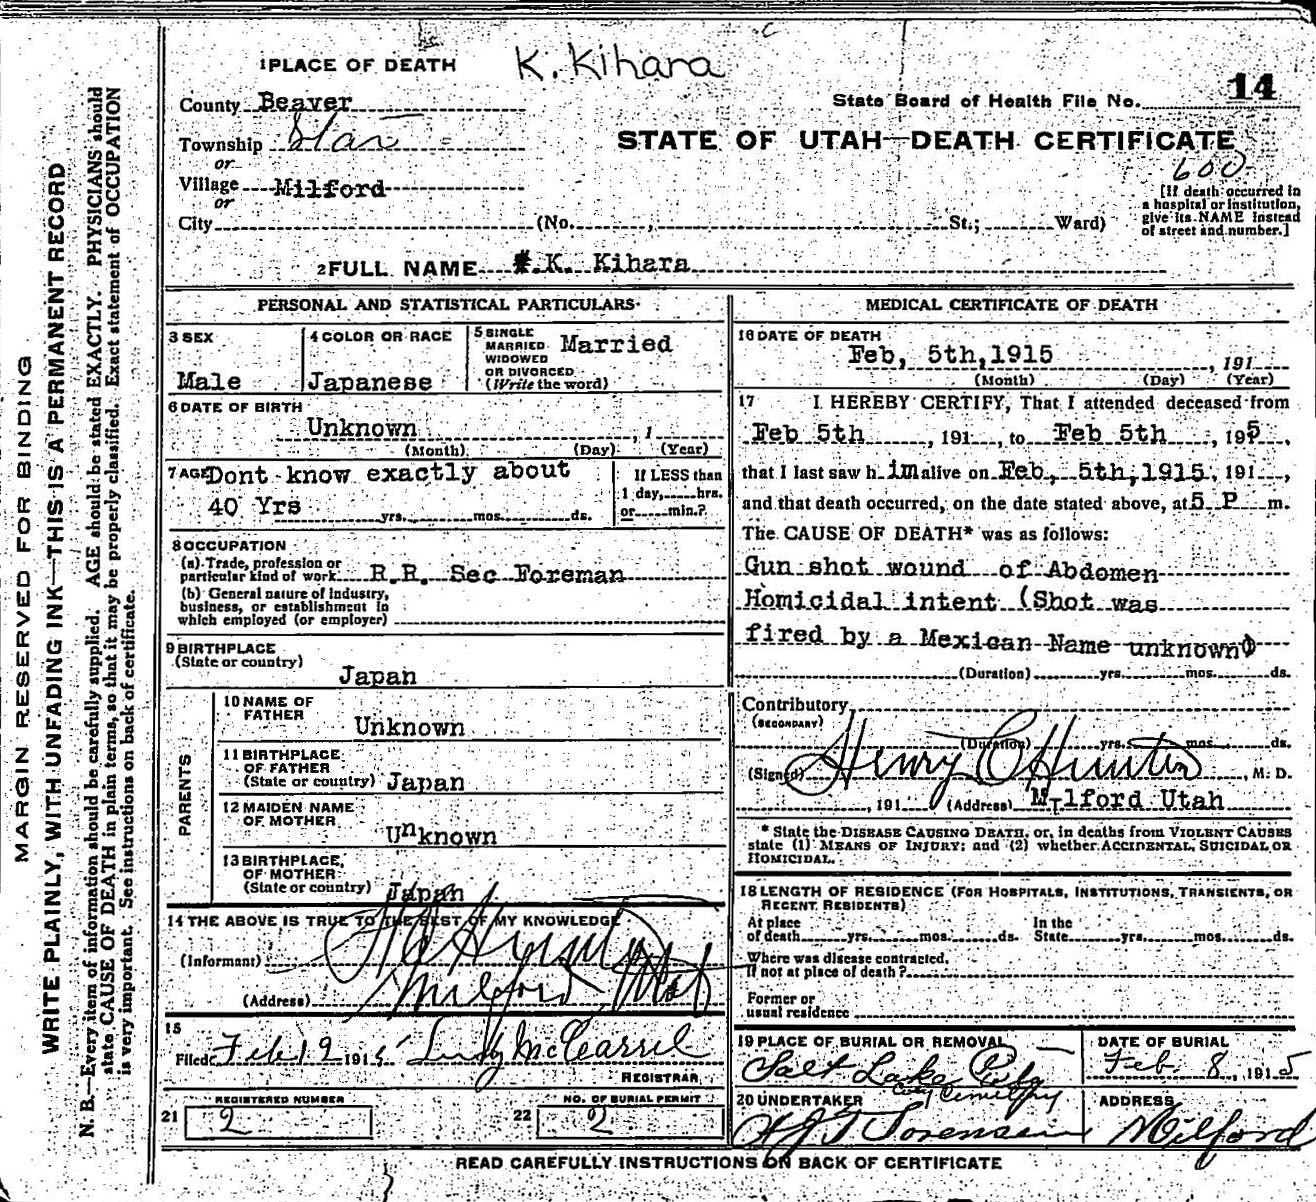 K. Kihara
1 PLACE OF DEATH
14
County Beaver
State Board of Health File No.
Township Star
STATE OF UTAH—DEATH CERTIFICATE
or
600
Village Milford
or
City (No. , St.; Ward)
[If death occurred in
a hospital or institution,
give its NAME instead
of street and number.]
2 FULL NAME K. Kihara
PERSONAL AND STATISTICAL PARTICULARS
3 SEX
Male
4 COLOR OR RACE
Japanese
5 SINGLE
MARRIED Married
WIDOWED
OR DIVORCED
(Write the word)
6 DATE OF BIRTH
Unknown , 1
(Month) (Day) (Year)
7 AGE Dont know exactly about
40 Yrs yrs. mos. ds.
If LESS than
1 day, hrs.
or min.?
8 OCCUPATION
(a) Trade, profession or
particular kind of work R.R. Sec Foreman
(b) General nature of industry,
business, or establishment in
which employed (or employer)
9 BIRTHPLACE
(State or country)
Japan
PARENTS
10 NAME OF
FATHER
Unknown
11 BIRTHPLACE
OF FATHER
(State or country) Japan
12 MAIDEN NAME
OF MOTHER
Unknown
13 BIRTHPLACE,
OF MOTHER
(State or country) Japan
14 THE ABOVE IS TRUE TO THE BEST OF MY KNOWLEDGE
(Informant)
(Address) Milford Utah
15
Filed Feb 12 1915 McCarrel
REGISTRAR
REGISTERED NUMBER
21 2
NO. OF BURIAL PERMIT
22 2
MEDICAL CERTIFICATE OF DEATH
16 DATE OF DEATH
Feb, 5th, 1915 , 191
(Month) (Day) (Year)
17 I HEREBY CERTIFY, That I attended deceased from
Feb 5th , 191 , to Feb 5th , 195 ,
that I last saw h im alive on Feb, 5th, 1915, 191 ,
and that death occurred, on the date stated above, at 5 P m.
The CAUSE OF DEATH* was as follows:
Gun shot wound of Abdomen
Homicidal intent (Shot was
fired by a Mexican Name unknown)
(Duration) yrs. mos. ds.
Contributory
(SECONDARY)
(Duration) yrs. mos. ds.
(Signed) Henry C Hunter , M. D.
, 191 (Address) Milford Utah
* State the DISEASE CAUSING DEATH, or, in deaths from VIOLENT CAUSES
state (1) MEANS OF INJURY; and (2) whether ACCIDENTAL, SUICIDAL OR
HOMICIDAL.
18 LENGTH OF RESIDENCE (FOR HOSPITALS, INSTITUTIONS, TRANSIENTS, OR
RECENT RESIDENTS)
At place
of death yrs. mos. ds.
In the
State yrs. mos. ds.
Where was disease contracted,
If not at place of death?
Former or
usual residence
19 PLACE OF BURIAL OR REMOVAL
Salt Lake City
City Cemetery
DATE OF BURIAL
Feb. 8, 1915
20 UNDERTAKER
Sorensen
ADDRESS
Milford
READ CAREFULLY INSTRUCTIONS ON BACK OF CERTIFICATE
MARGIN RESERVED FOR BINDING
WRITE PLAINLY, WITH UNFADING INK—THIS IS A PERMANENT RECORD
N. B.—Every item of information should be carefully supplied. AGE should be stated EXACTLY. PHYSICIANS should
state CAUSE OF DEATH in plain terms, so that it may be properly classified. Exact statement of OCCUPATION
is very important. See instructions on back of certificate.